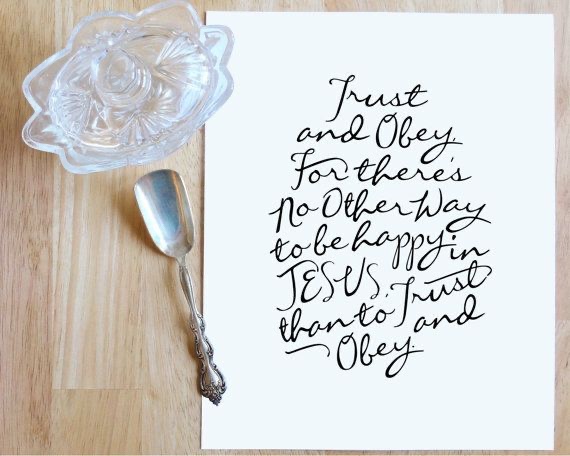 Trust
and Obey,
For there's
No Other Way
to be happy in
JESUS,
than to, Trust
and
Obey.